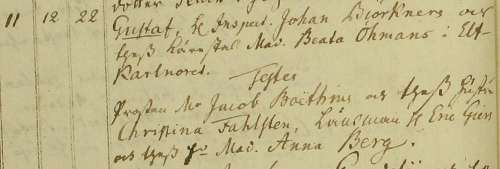 11 12 22 Gustaf, H Inspect. Johan Biörkners och
thess käresta Mad. Beata Öhmans i Elf-
Karlnored.
Testes
Prosten Mr Jacob Boëthius och thess hustru
Christina Fahlsten, Länsman H Eric Giers
och thess Fr Mad. Anna Berg.